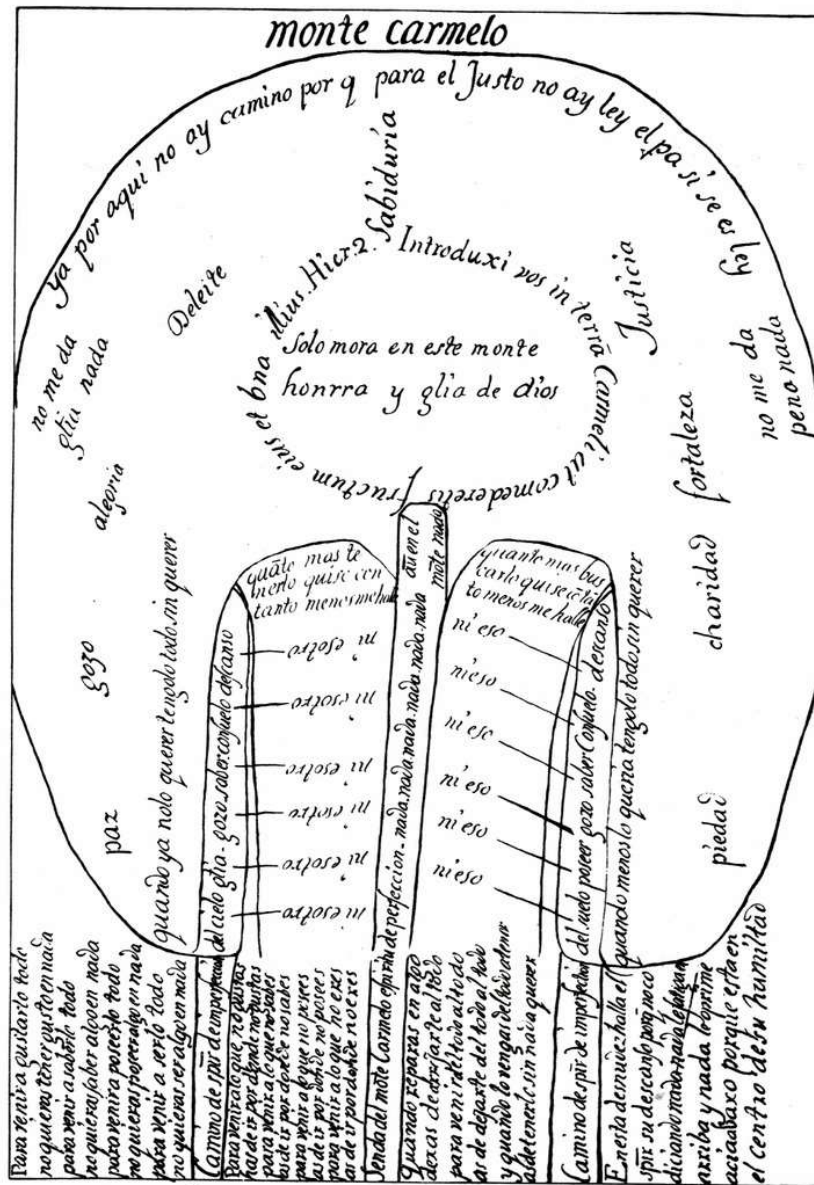 monte carmelo
ya por aqui no ay camino por q para el Justo no ay ley el pa si se es ley
Sabiduría
Deleite
Justicia
Introduxi vos in terrā Carmeli ut comederetis fructum eius et bna illius. Hier. 2.
Solo mora en este monte
honrra y glia de dios
no me da
glia nada
no me da
pena nada
alegria
fortaleza
gozo
charidad
paz
piedad
quando ya nolo querer tengolo todo sin querer
quāto mas te
nerlo quise con
tanto menos me halle
ni esotro
ni esotro
ni esotro
ni esotro
ni esotro
ni esotro
aū en el
mōte nada
quanto mas bus
carlo quise cō tā
to menos me halle
ni eso
ni eso
ni eso
ni eso
ni eso
ni eso
quando menos lo queria tengolo todo sin querer
Para venir a gustarlo todo
no quieras tener gusto en nada
para venir a saberlo todo
no quieras saber algo en nada
para venir a poseerlo todo
no quieras poseer algo en nada
para venir a serlo todo
no quieras ser algo en nada
Camino de spū de imperfeccion del cielo glia - gozo - saber consuelo descanso
Para venir a lo que no gustas
has de ir por donde no gustas
para venir a lo que no sabes
as de ir por donde no sabes
para venir a lo que no posees
as de ir por donde no posees
para venir a lo que no eres
as de ir por donde no eres
Senda del mōte Carmelo espiritu de perfeccion - nada. nada. nada. nada. nada. nada
Quando reparas en algo
dexas de arrojarte al todo
para venir del todo al todo
as de dejarte del todo al todo
y quando lo vengas del todo a tener
as de tenerlo sin nada querer
Camino de spū de imperfeccion del suelo poseer gozo saber consuelo - descanso
En esta desnudez halla el
spū su descanso porq no co
diciando nada, nada le fatiga
arriba y nada le oprime
acia abaxo porque esta en
el centro de su humildad